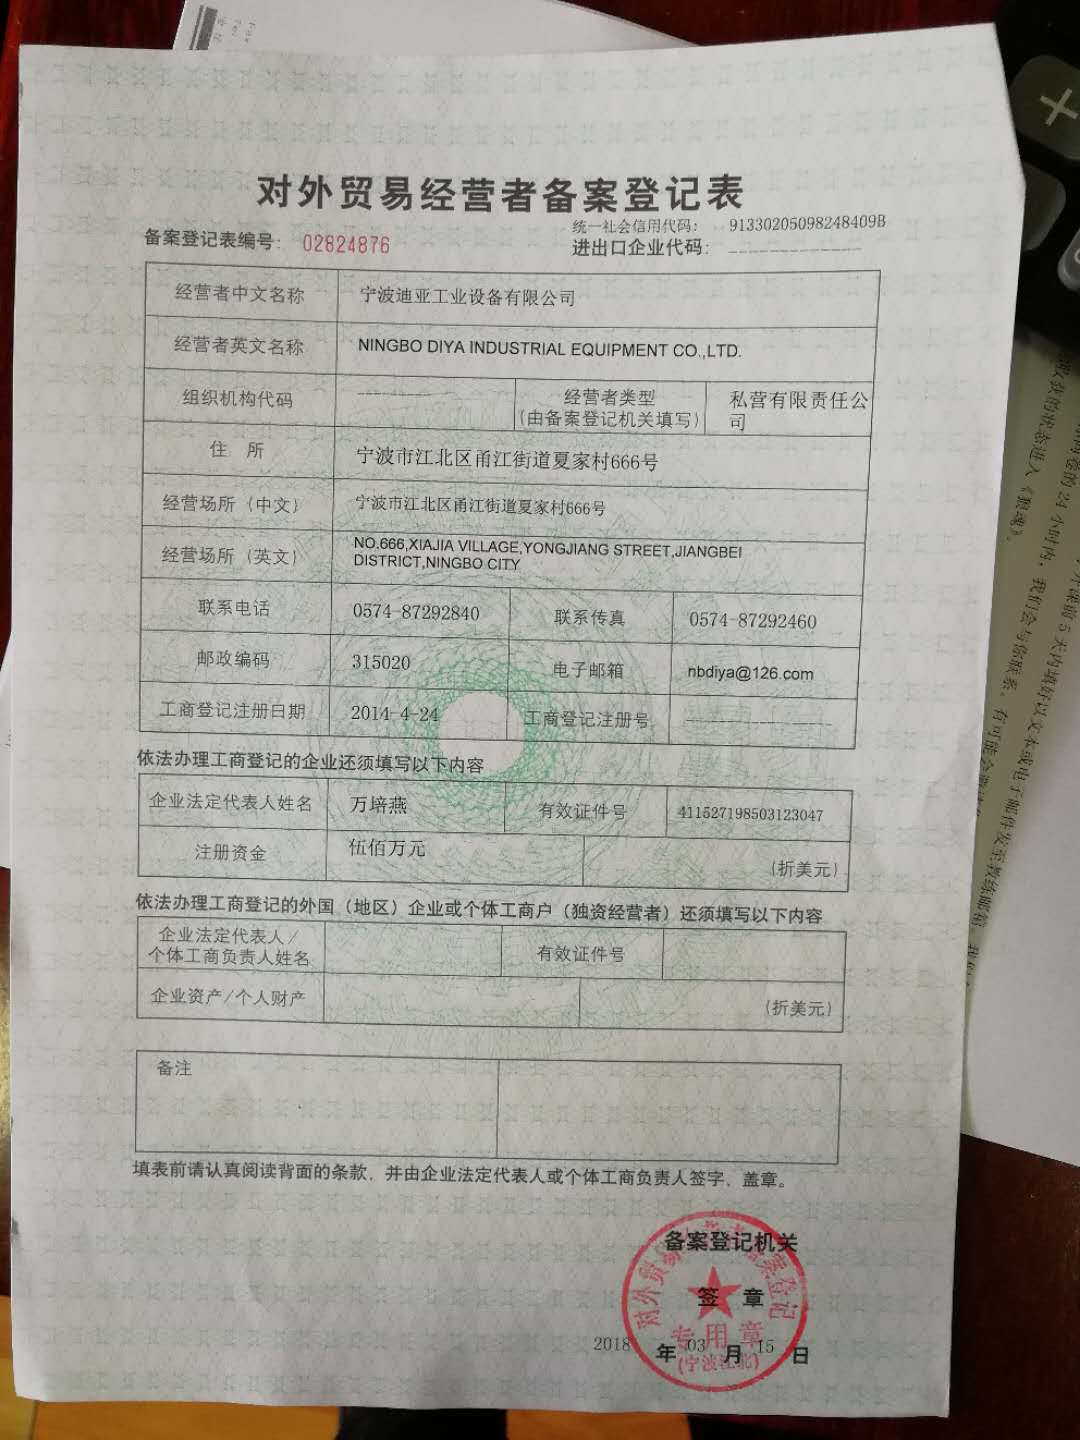 对外贸易经营者备案登记表
统一社会信用代码: 91330205098248409B
备案登记表编号: 02824876
进出口企业代码:
经营者中文名称 宁波迪亚工业设备有限公司
经营者英文名称 NINGBO DIYA INDUSTRIAL EQUIPMENT CO.,LTD.
组织机构代码 经营者类型 私营有限责任公
(由备案登记机关填写) 司
住 所 宁波市江北区甬江街道夏家村666号
经营场所 (中文) 宁波市江北区甬江街道夏家村666号
经营场所 (英文) NO.666,XIAJIA VILLAGE,YONGJIANG STREET,JIANGBEI
DISTRICT,NINGBO CITY
联系电话 0574-87292840 联系传真 0574-87292460
邮政编码 315020 电子邮箱 nbdiya@126.com
工商登记注册日期 2014-4-24 工商登记注册号
依法办理工商登记的企业还须填写以下内容
企业法定代表人姓名 万培燕 有效证件号 411527198503123047
注册资金 伍佰万元 (折美元)
依法办理工商登记的外国（地区）企业或个体工商户（独资经营者）还须填写以下内容
企业法定代表人/ 有效证件号
个体工商负责人姓名
企业资产/个人财产 (折美元)
备注
填表前请认真阅读背面的条款，并由企业法定代表人或个体工商负责人签字、盖章。
备案登记机关
签 章
专用章
(宁波江北)
2018 年 03 月 15 日